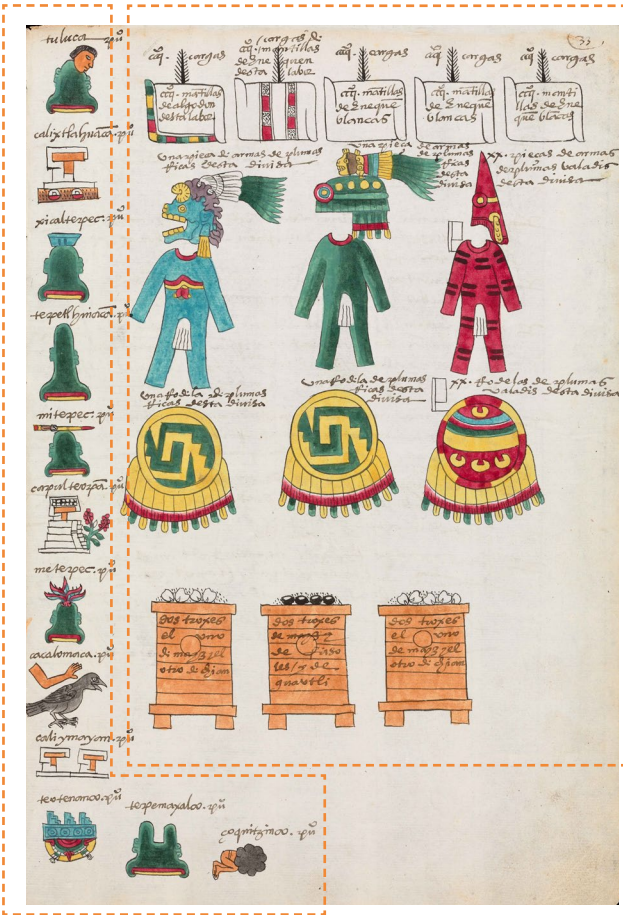 tuluca. pũ
calixtlahuaca. pũ
xicaltepec. pũ
tepetlhuiacã. pũ
mitepec. pũ
capulteopã. pũ
metepec. pũ
cacalomaca. pũ
caliymayan. pũ
teotenanco. pũ
tepemaxalco. pũ
çoquitzinco. pũ
cargas
mãtillas
de algodon
desta labor
cargas de
mantillas
de enequen
desta labor
cargas
mãtillas
de enequē
blancas
cargas
mãtillas
de enequē
blancas
cargas
manti
llas de ene
que blãcas
Una pieça de armas de plumas
Ricas desta divisa
Una pieça de armas
de plumas
Ricas
desta
divisa
XX. pieças de armas
de plumas valadis
desta divisa
Una Rodela de plumas
Ricas desta divisa
Una Rodela de plumas
Ricas desta
divisa
XX. Rodelas de plumas
valadis desta divisa
dos troxes
el uno
de mayz y el
otro de chian
dos troxes
de mayz y
de frisoles y de
guautli
dos troxes
el uno
de mayz y el
otro de chian